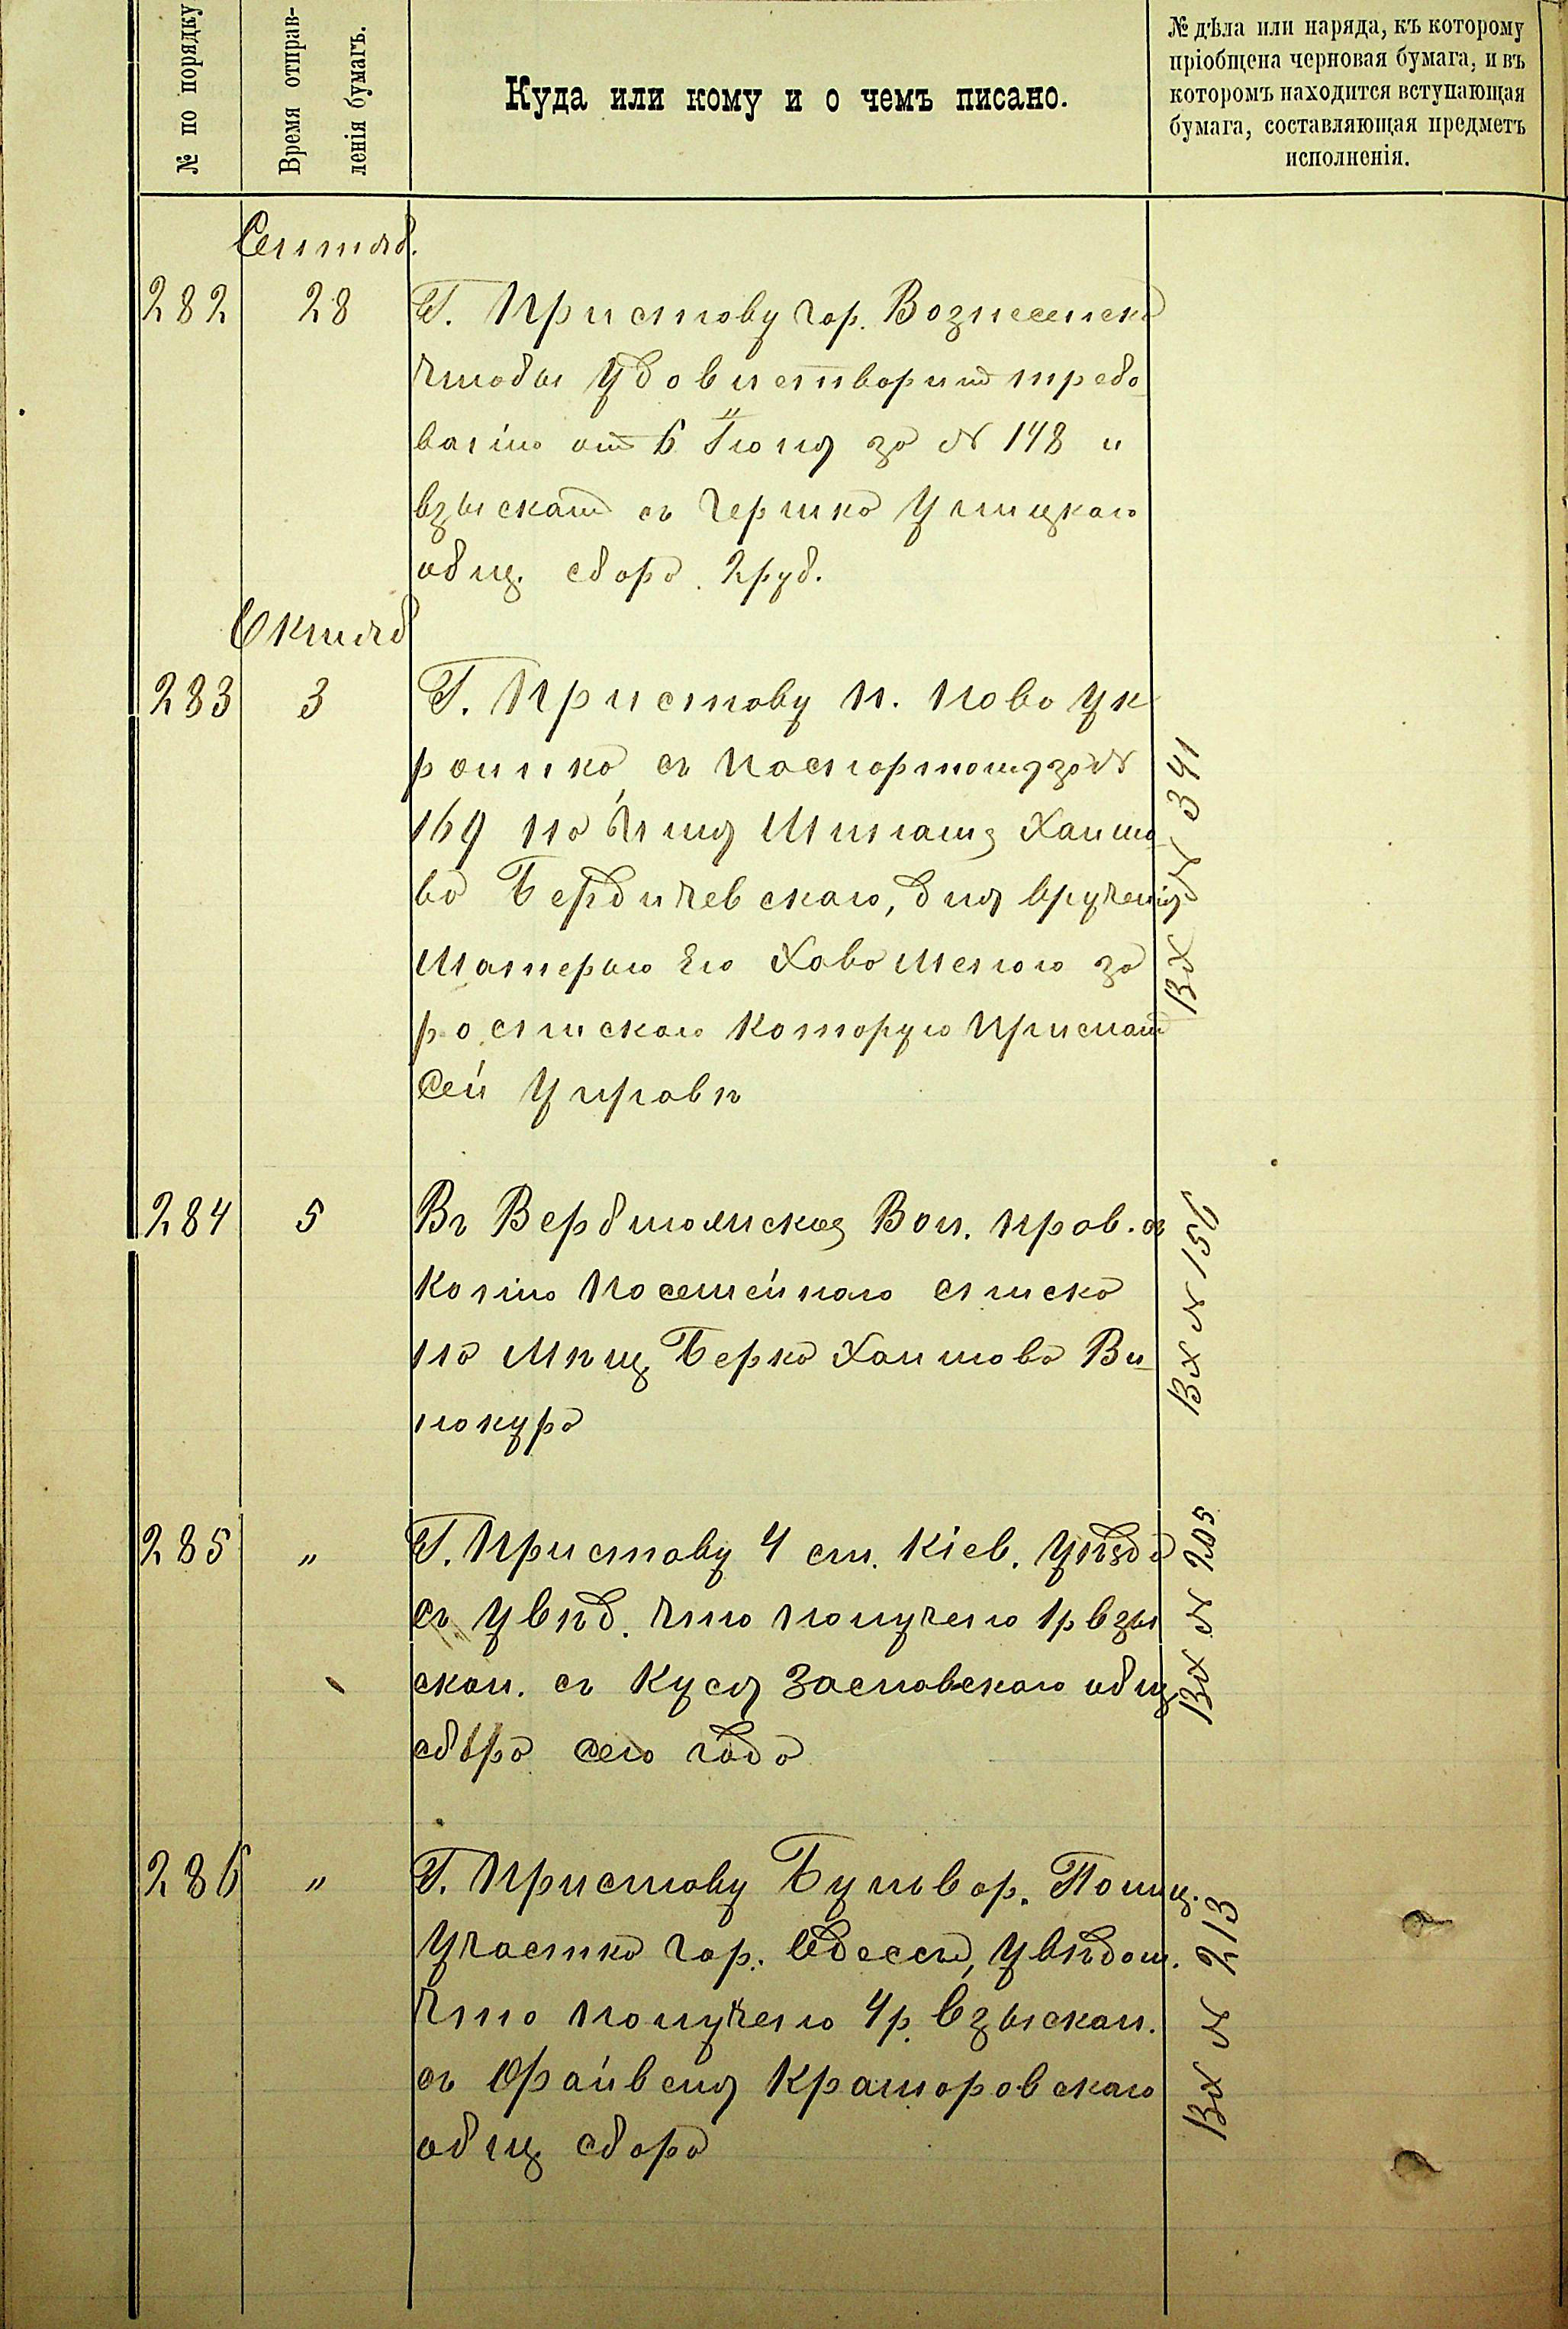 № по порядку
Время отправ-
ленія бумагъ.
Куда или кому и о чемъ писано.
№ дѣла или наряда, къ которому
пріобщена черновая бумага, и въ
которомъ находится вступающая
бумага, составляющая предметъ
исполненія.
Сентяб.
282 28 Г. Приставу гор. Вознесенска
чтобы удовлетворить требо
ванію отъ 6 Іюня за № 148 и
взыскать съ Гершка Улицкаго
общ. сбора 2 руб.
Октяб
283 3 Г. Приставу п. Ново Ук
раинка съ паспортомъ за №
169 на имя Шлиома Хаимо
ва Бердичевскаго, для врученія
матерью его Хавою Меню за
роспискою которую прислать
сей Управѣ
Вх № 341
284 5 Въ Вербляжскъ Вол. прав. съ
копію посемейного списка
на Мѣщ Берка Хаимова Ви
нокура
Вх № 156
285 " Г. Приставу 4 ст. Кіев. Уѣзда
съ увѣд. что получено 1 р взы
скан. съ Куся Заславскаго общ
сбора сего года
Вх № 205
286 " Г. Приставу Бульвар. Полиц.
участка гор. Одессы, увѣдом.
что получено 4 р. взыскан.
съ Файвеля Краморовскаго
общ сбора
Вх № 213